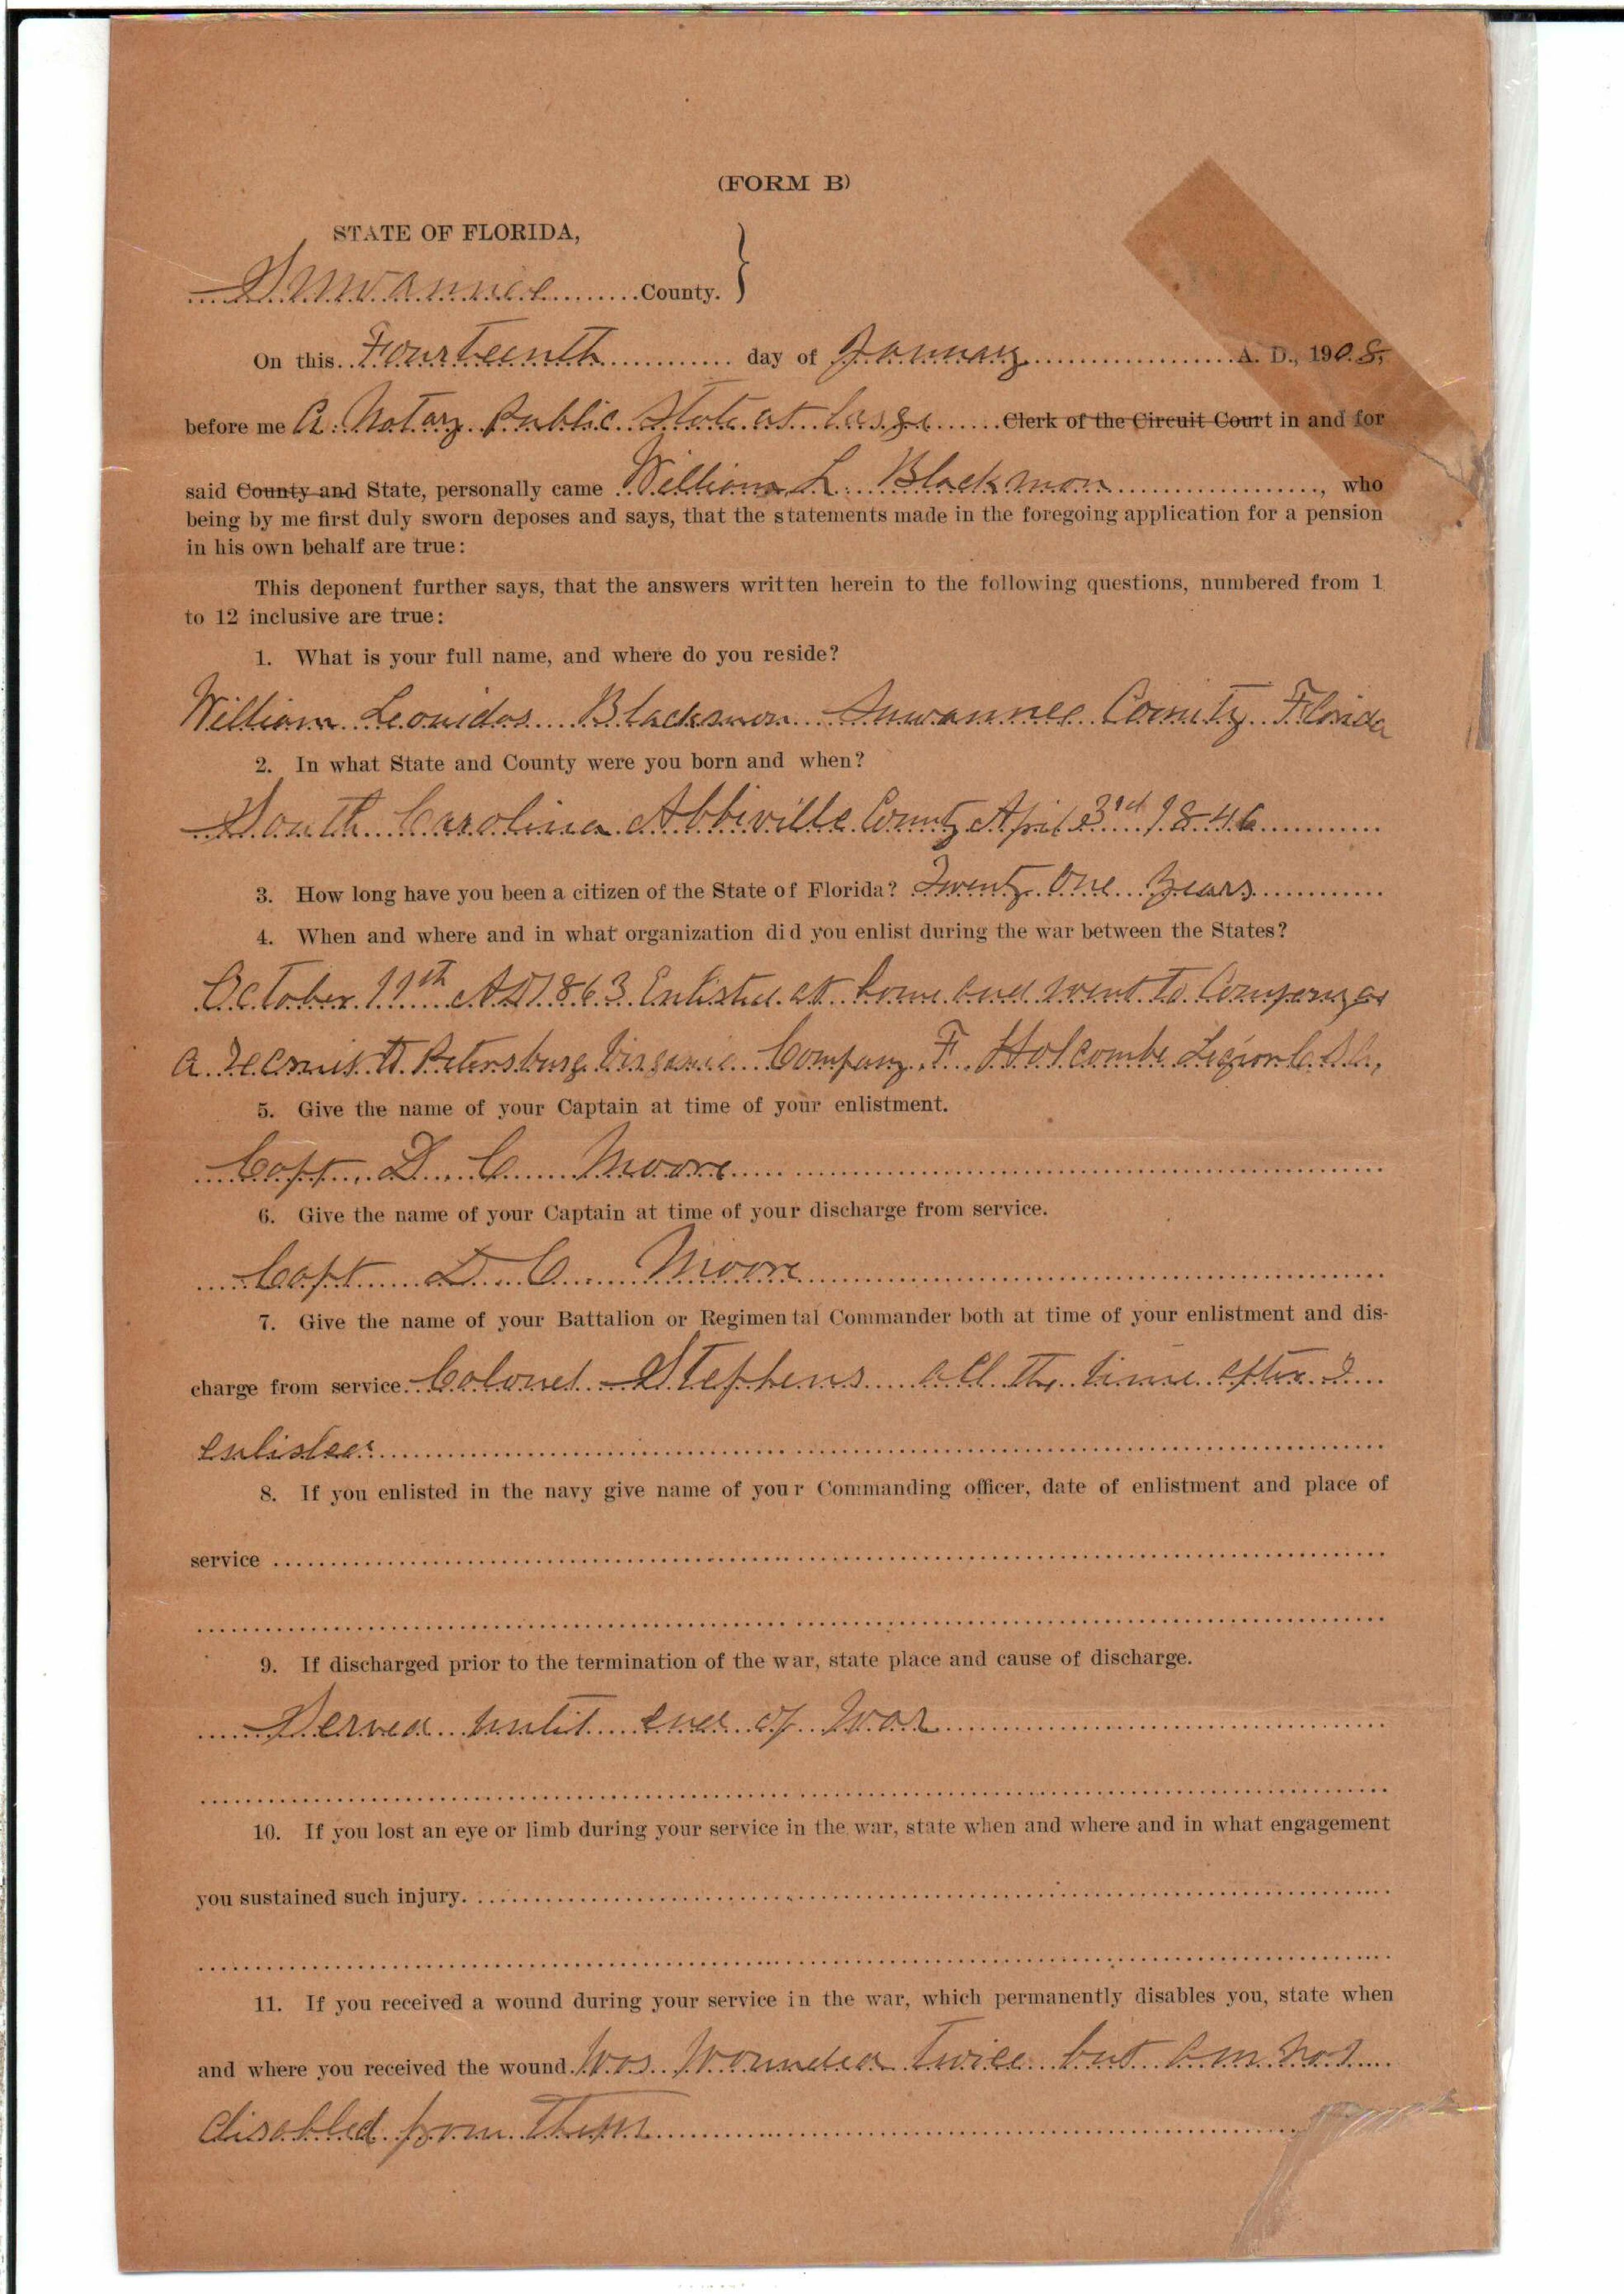 (FORM B)
STATE OF FLORIDA,
Suwannee County.
On this Fourteenth day of January A. D., 1908,
before me A Notary Public State at large Clerk of the Circuit Court in and for
said County and State, personally came William L. Blackmon, who
being by me first duly sworn deposes and says, that the statements made in the foregoing application for a pension
in his own behalf are true:
This deponent further says, that the answers written herein to the following questions, numbered from 1
to 12 inclusive are true:
1. What is your full name, and where do you reside?
William Leonidas Blackmon Suwannee County Florida
2. In what State and County were you born and when?
South Carolina Abbiville County April 3rd 1846
3. How long have you been a citizen of the State of Florida? Twenty One Years
4. When and where and in what organization did you enlist during the war between the States?
October 11th AD 1863 Enlisted at home and went to Company as
a recruit Petersburg Virginia Company F Holcombe Legion C.S.A.,
5. Give the name of your Captain at time of your enlistment.
Capt. D. C. Moore
6. Give the name of your Captain at time of your discharge from service.
Capt D. C. Moore
7. Give the name of your Battalion or Regimental Commander both at time of your enlistment and dis-
charge from service. Colonel Stephens all the time after I
enlisted
8. If you enlisted in the navy give name of your Commanding officer, date of enlistment and place of
service
9. If discharged prior to the termination of the war, state place and cause of discharge.
Served until end of War
10. If you lost an eye or limb during your service in the war, state when and where and in what engagement
you sustained such injury.
11. If you received a wound during your service in the war, which permanently disables you, state when
and where you received the wound. Was Wounded twice but am not
disabled from them